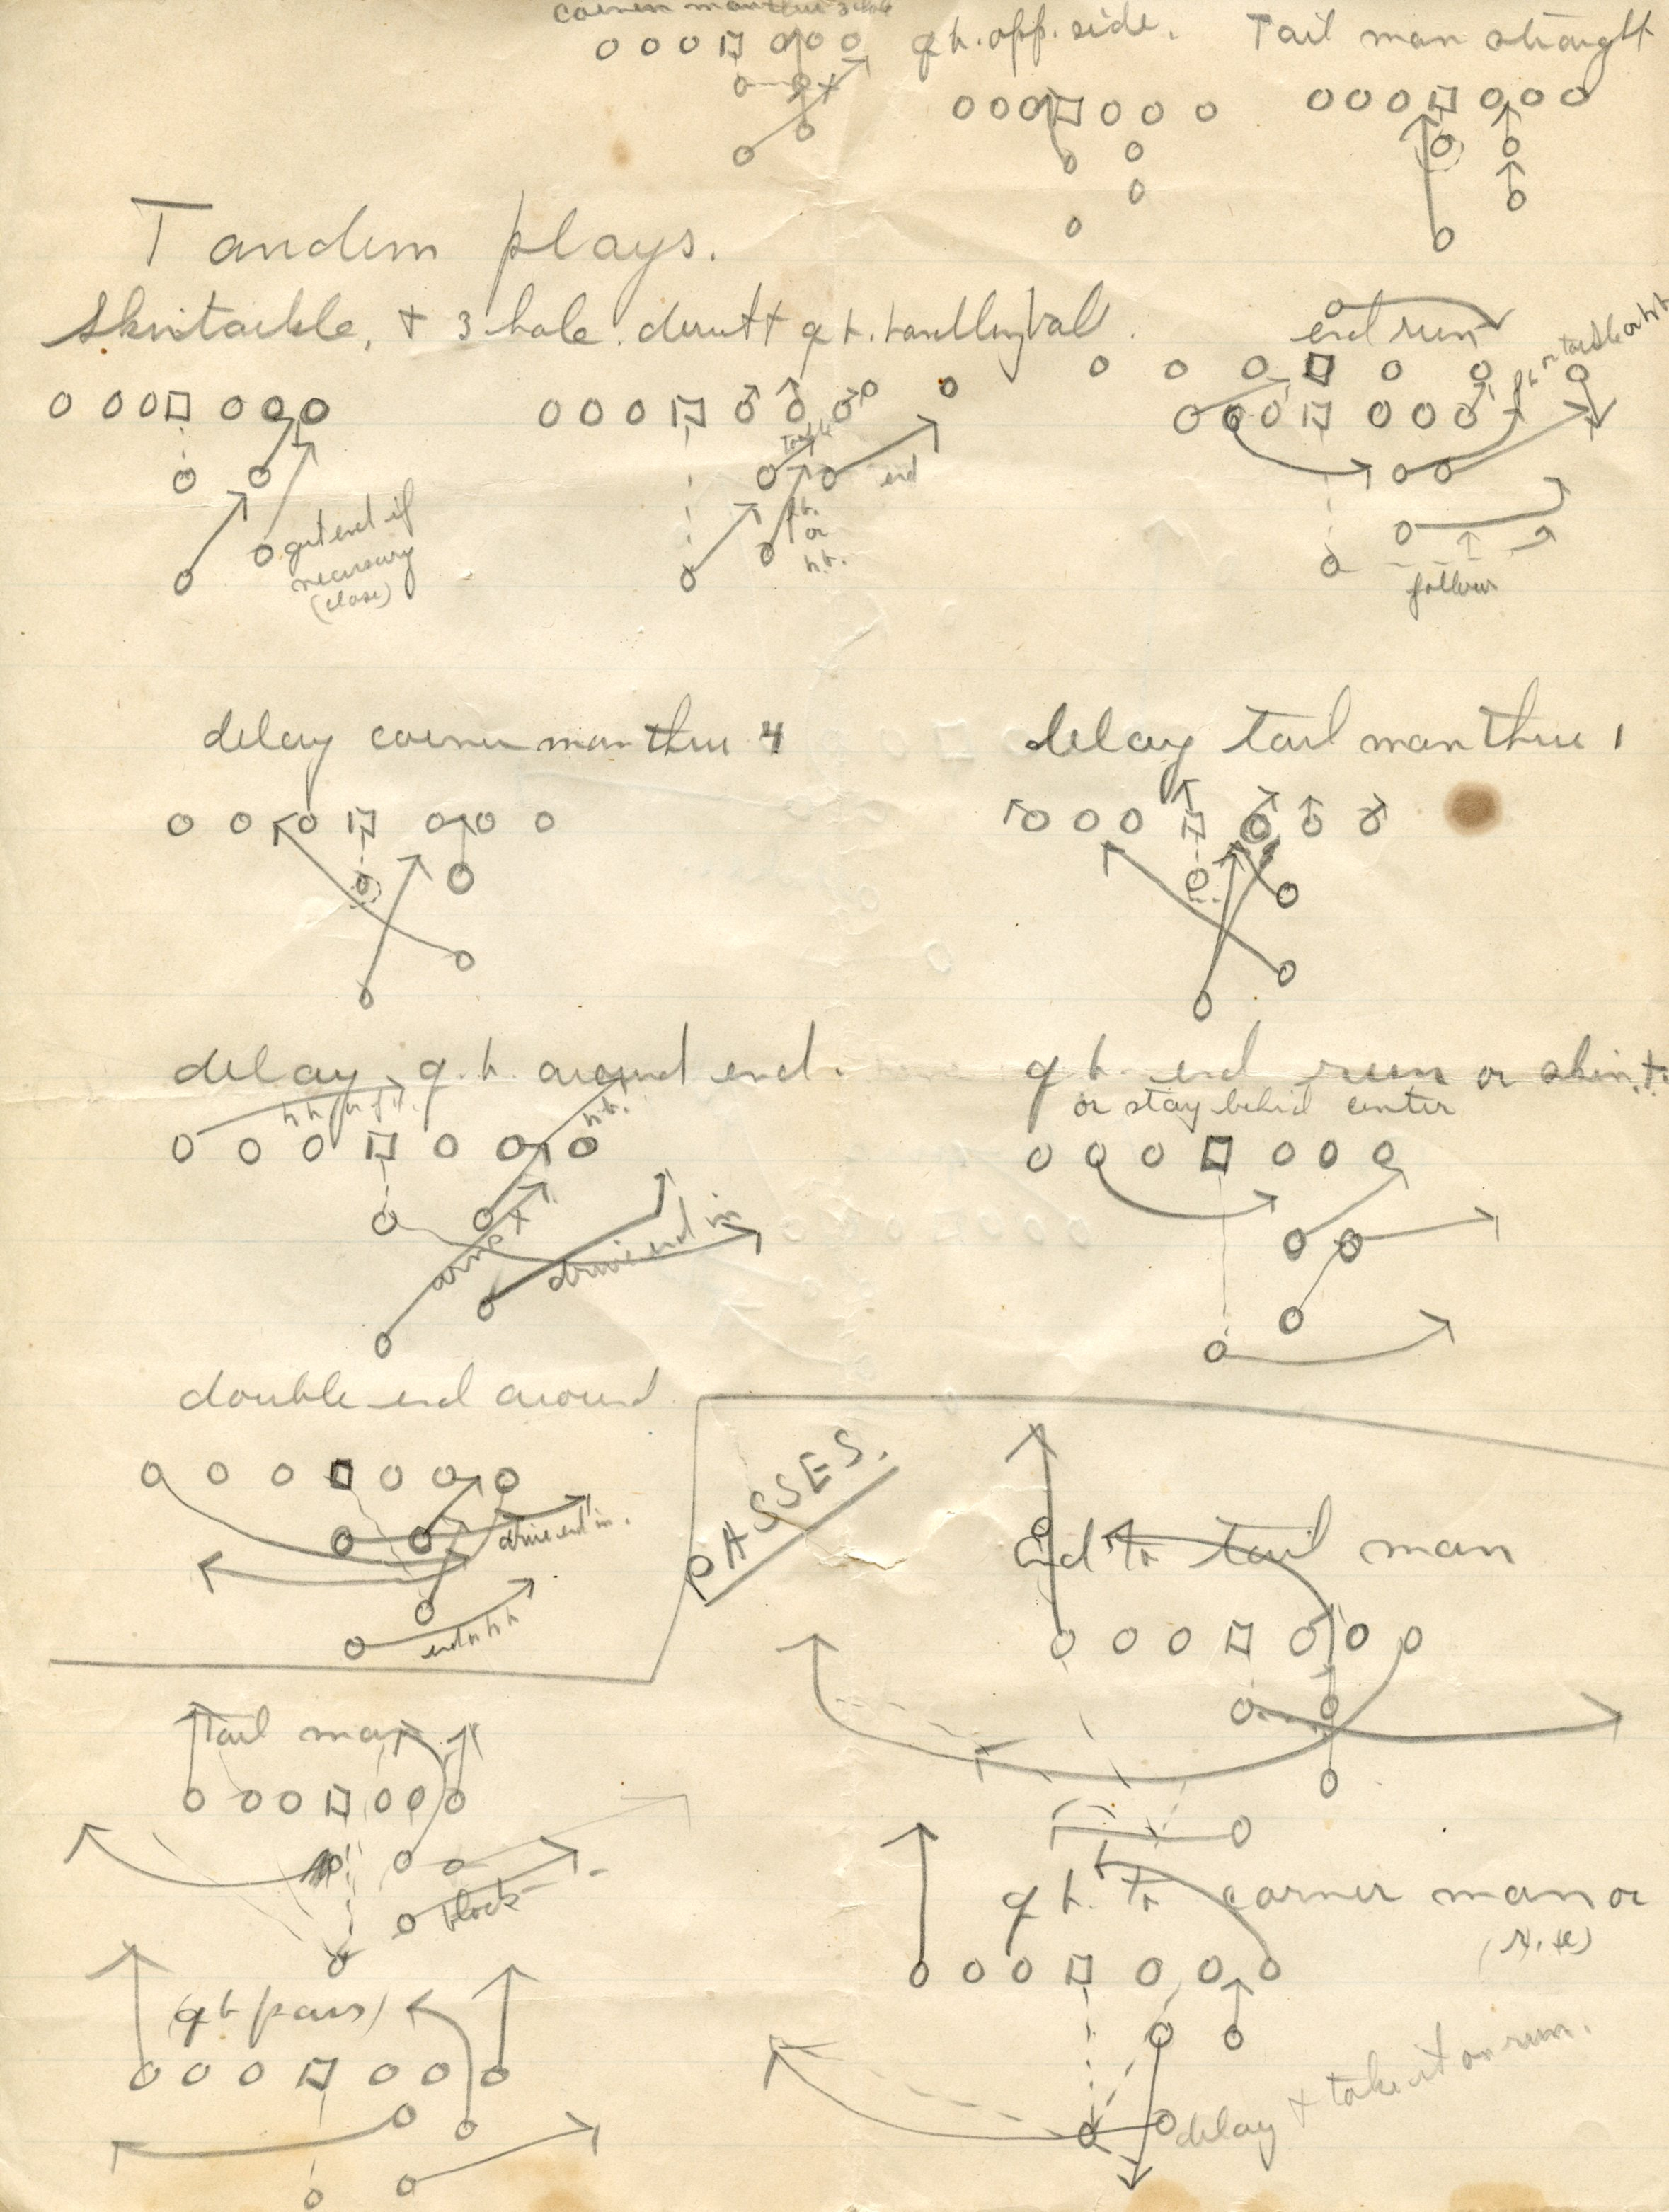 corner man thru 3 hole
q b. opp. side.
Tail man straight
Tandem plays.
Skintackle, + 3 hole. direct + q b. handling ball.
end run
or tackle or h b
tackle
end
or
h.b.
get end if
necessary
(close)
fullback
delay corner man thru 4
delay tail man thru 1
delay q.b. around end.
h.b.
drive end in
q b. end run or skin. t.
or stay behind center
double end around
drive end in.
end or h b
PASSES.
End to tail man
Tail man
block
q b. to corner man or
(q b pass)
delay + take it on run.